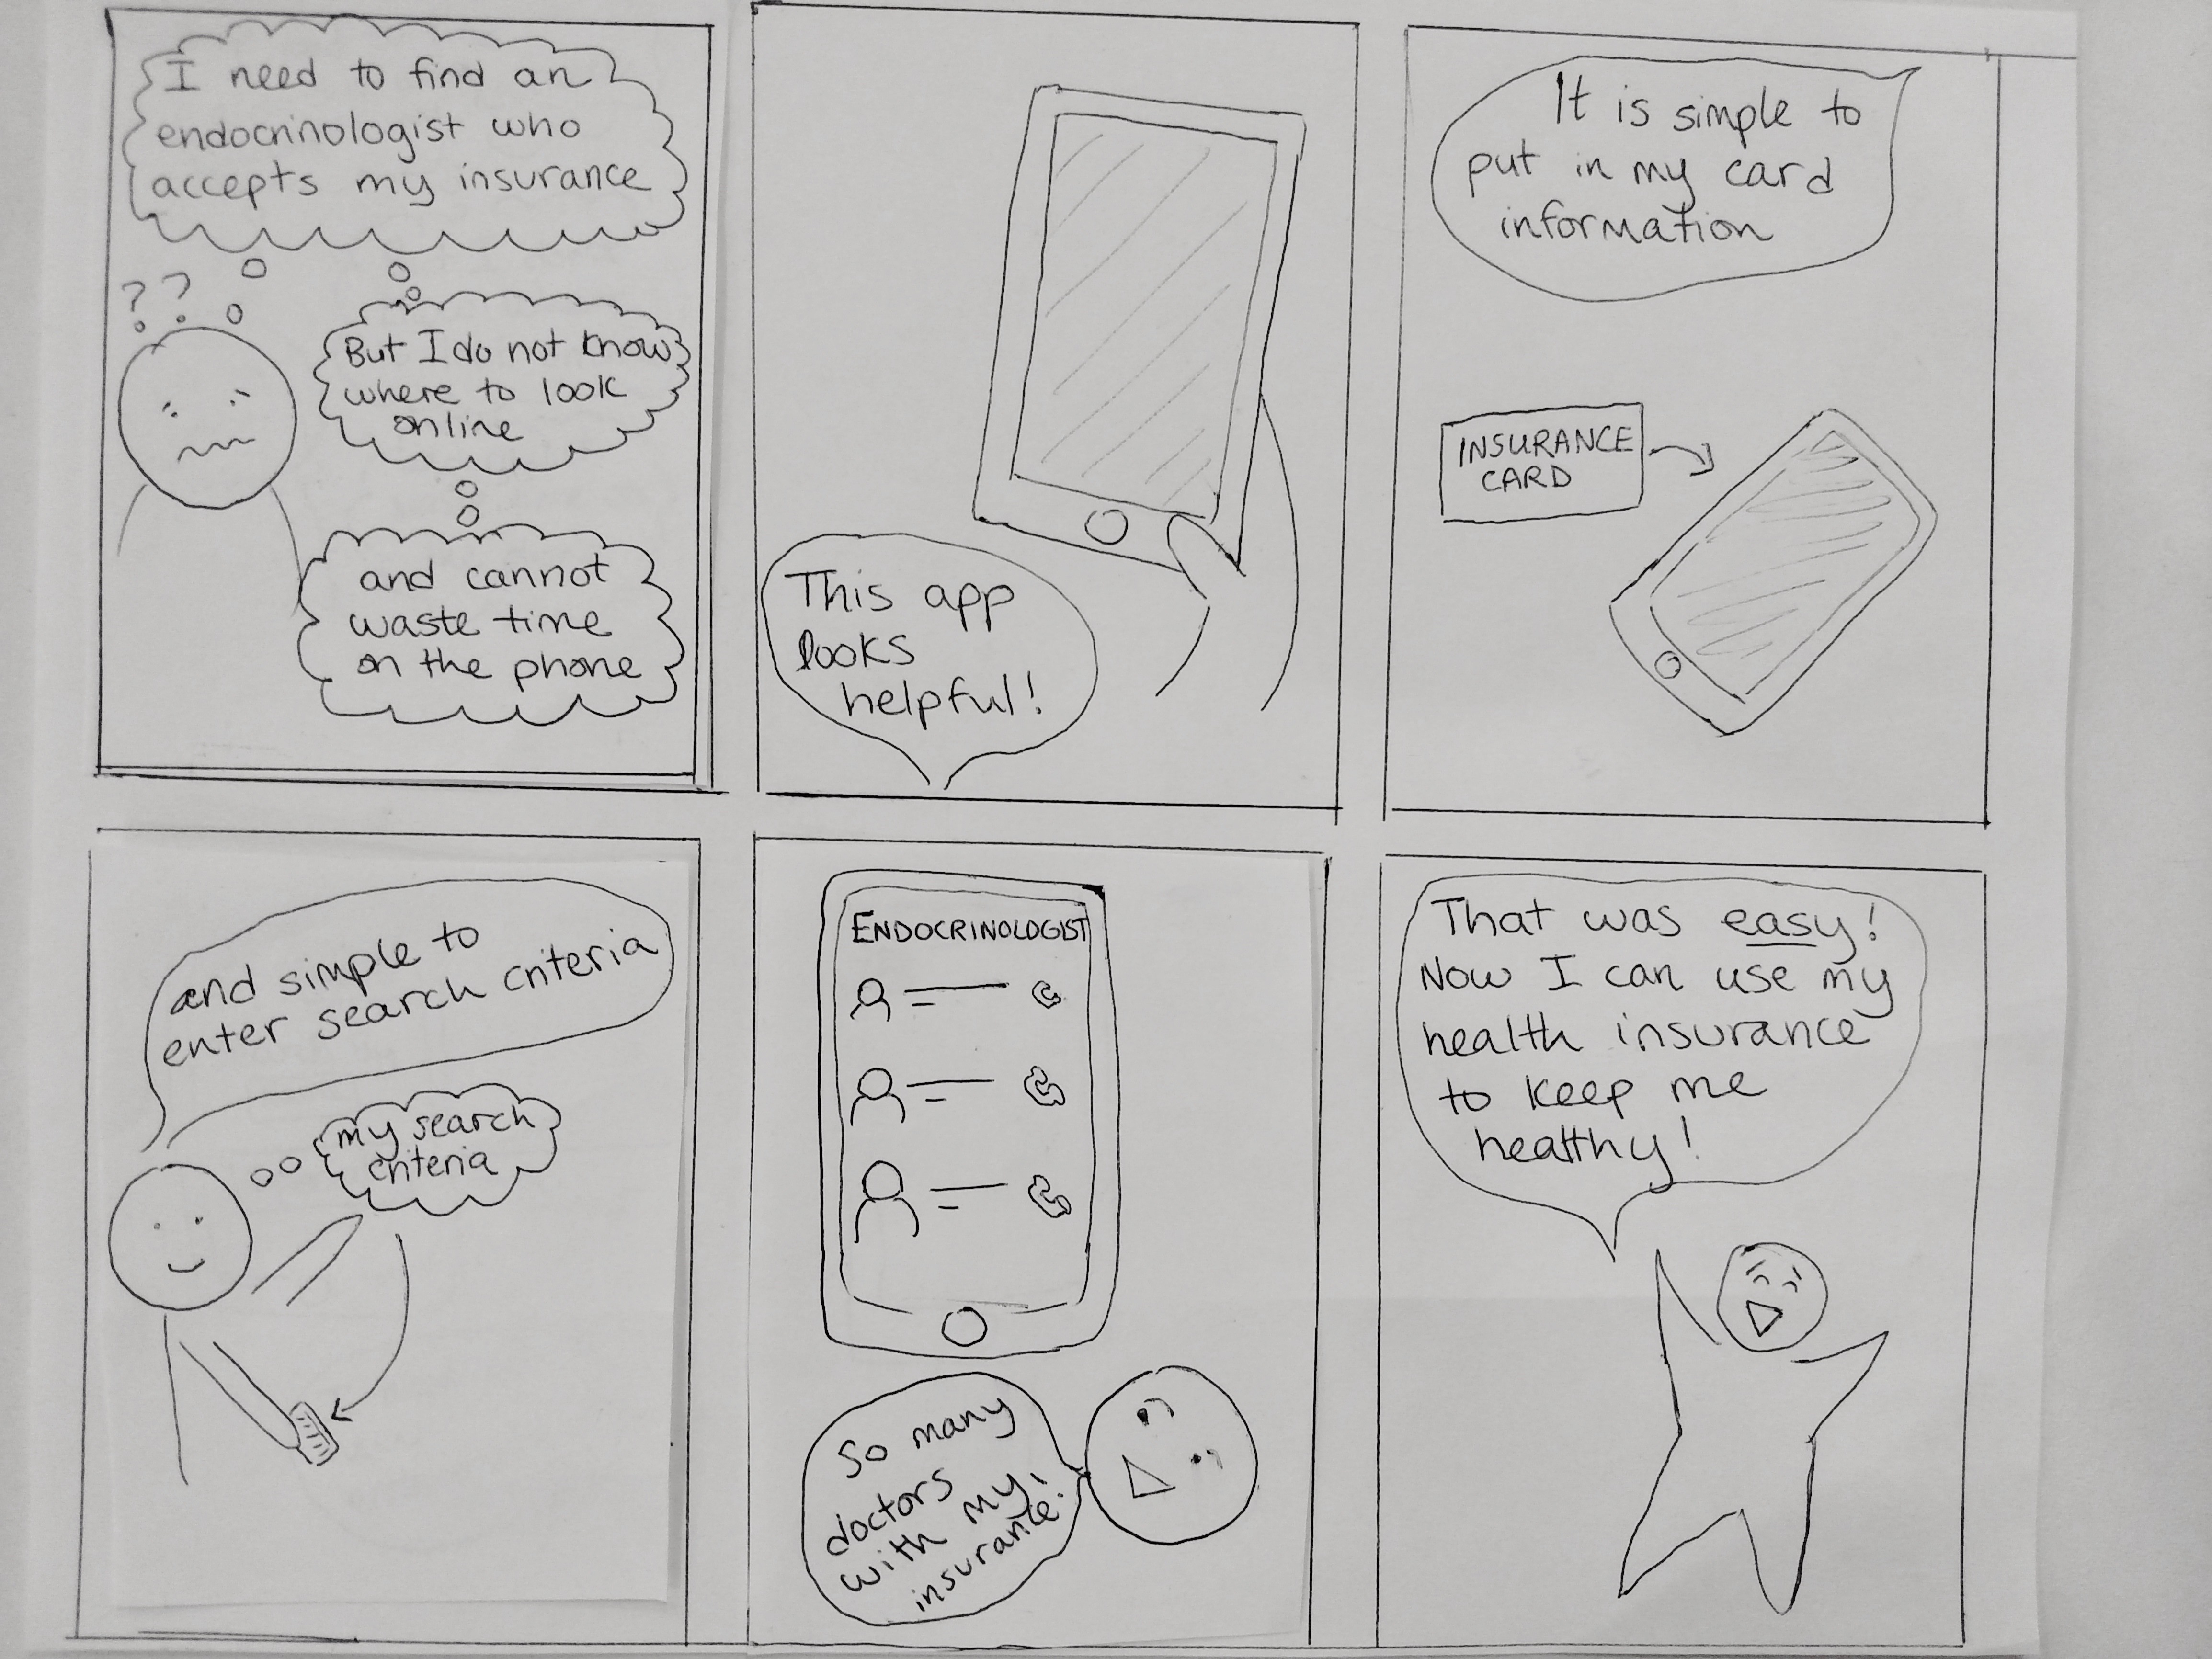 I need to find an
endocrinologist who
accepts my insurance
??
But I do not know
where to look
online
and cannot
waste time
on the phone
This app
looks
helpful!
It is simple to
put in my card
information
INSURANCE
CARD
and simple to
enter search criteria
my search
criteria
ENDOCRINOLOGIST
So many
doctors
with my
insurance!
That was easy!
Now I can use my
health insurance
to keep me
healthy!